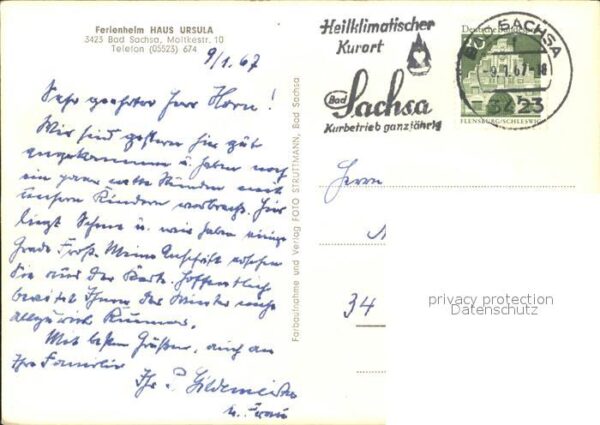 Ferienheim HAUS URSULA
3423 Bad Sachsa, Moltkestr. 10
Telefon (05523) 674
9/1.67
Sehr geehrter Herr Horn!
Wir sind gestern hier gut
angekommen u. haben noch
ein paar nette Stunden mit
unseren Kindern verbracht. Hier
liegt Schnee u. wir haben einige
Grade Frost. Meine Anschrift ersehen
Sie aus der Karte. Hoffentlich
bereitet Ihnen der Winter nicht
allzuviel Kummer.
Mit besten Grüßen, auch an
Ihre Familie
Ihr
u. Frau
Farbaufnahme und Verlag FOTO STRUTTMANN, Bad Sachsa
Heilklimatischer
Kurort
Bad
Sachsa
Kurbetrieb ganzjährig
Deutsche Bundespost
FLENSBURG/SCHLESWIG
SACHSA
9.1.67-18
3423
Herrn
34
privacy protection
Datenschutz